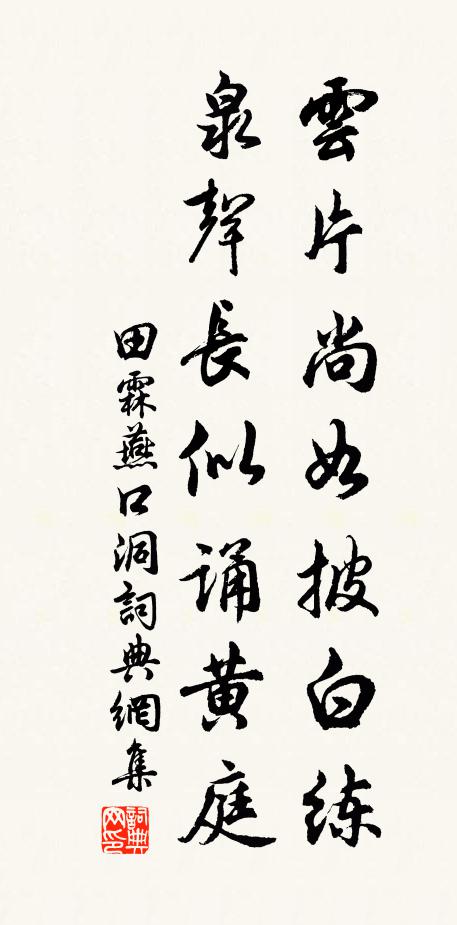 雲片尚如披白练
泉聲長似诵黄庭
田霖燕口洞詞典網集
詞典網印